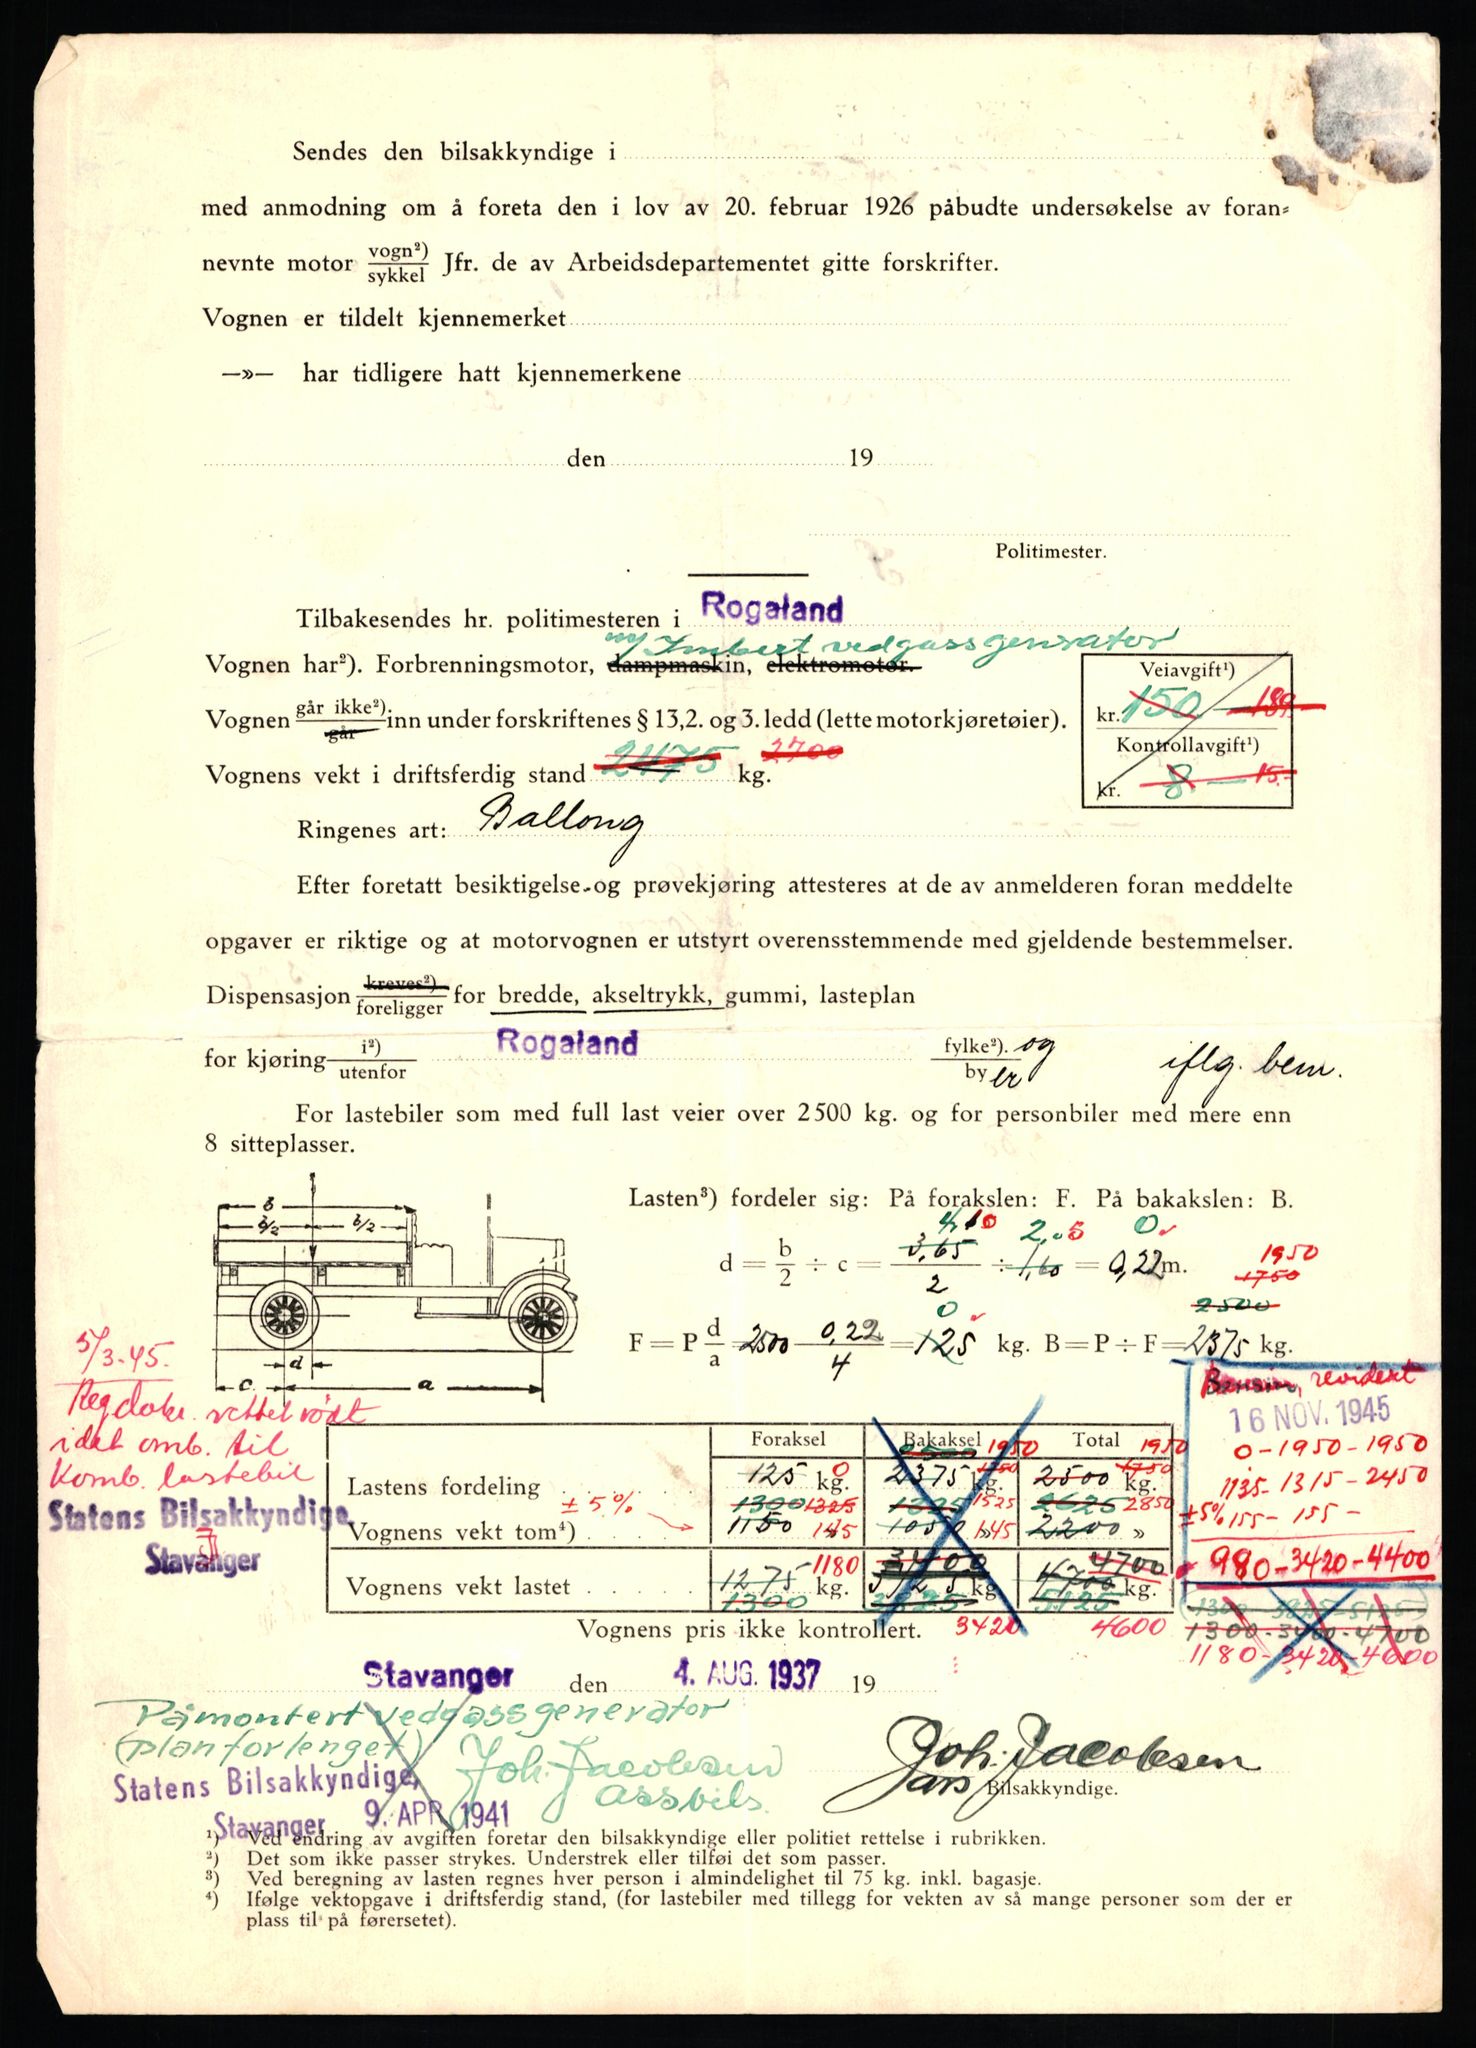 Sendes den bilsakkyndige i
med anmodning om å foreta den i lov av 20. februar 1926 påbudte undersøkelse av foran=
nevnte motor vogn²) / sykkel Jfr. de av Arbeidsdepartementet gitte forskrifter.
Vognen er tildelt kjennemerket
—»— har tidligere hatt kjennemerkene
den 19
Politimester.
Tilbakesendes hr. politimesteren i Rogaland
m/ Imbert vedgassgenerator
Vognen har²). Forbrenningsmotor, dampmaskin, elektromotor.
Veiavgift¹)
kr. 150 189.
Vognen går ikke²) / går inn under forskriftenes § 13,2. og 3. ledd (lette motorkjøretøier).
Kontrollavgift¹)
kr. 8 15.-
Vognens vekt i driftsferdig stand 2475 kg. 2700
Ringenes art: Ballong
Efter foretatt besiktigelse og prøvekjøring attesteres at de av anmelderen foran meddelte
opgaver er riktige og at motorvognen er utstyrt overensstemmende med gjeldende bestemmelser.
Dispensasjon kreves²) / foreligger for bredde, akseltrykk, gummi, lasteplan
for kjøring i²) / utenfor Rogaland fylke²). og / by er iflg. bem.
For lastebiler som med full last veier over 2500 kg. og for personbiler med mere enn
8 sitteplasser.
b
b/2 b/2
d
c a
Lasten³) fordeler sig: På forakslen: F. På bakakslen: B.
4,10 2,05 0
d = b/2 ÷ c = 3,65/2 ÷ 1,60 = 0,22 m.
1950
1750
2500
0
F = P d/a 2500 0,22/4 = 125 kg. B = P ÷ F = 2375 kg.
5/3-45.
Reg.dok. rettet rødt
i det omb. til
komb. lastebil
Statens Bilsakkyndige
Stavanger
Bensin, revidert
16 NOV. 1945
0-1950-1950
1135-1315-2450
±5% 155-155-
980-3420-4400
1300-3825-5125
1300-3400-4700
1180-3420-4600
Foraksel Bakaksel Total
2500 1950 1950
Lastens fordeling 125 0 kg. 2375 1750 kg. 2500 1750 kg.
±5% 1300 1325 1325 1525 2625 2850
Vognens vekt tom⁴) 1150 145 » 1050 » 145 2200 »
1180 3400 4700
Vognens vekt lastet 1275 kg. kg. 4700 kg.
1300 3825 5125
Vognens pris ikke kontrollert. 3420 4600
Stavanger den 4. AUG. 1937 19
Påmontert vedgassgenerator
(plan forlenget) Joh. Jacobsen
ass bils.
Statens Bilsakkyndige,
Stavanger 9. APR. 1941
Joh. Jacobsen
Bilsakkyndige.
¹) Ved endring av avgiften foretar den bilsakkyndige eller politiet rettelse i rubrikken.
²) Det som ikke passer strykes. Understrek eller tilføi det som passer.
³) Ved beregning av lasten regnes hver person i almindelighet til 75 kg. inkl. bagasje.
⁴) Ifølge vektopgave i driftsferdig stand, (for lastebiler med tillegg for vekten av så mange personer som der er
plass til på førersetet).